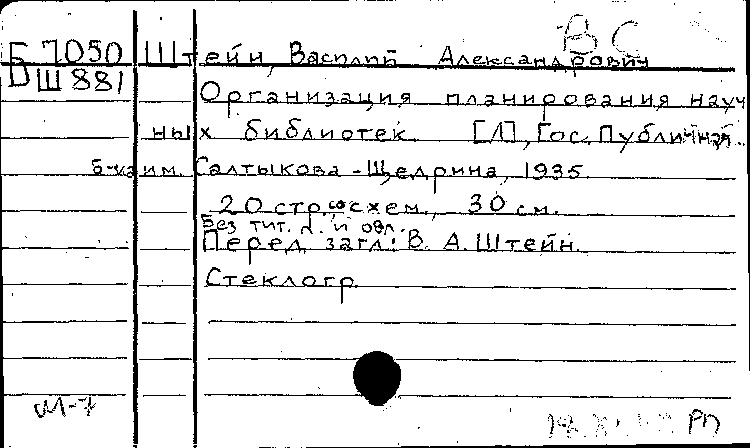 ВС
Б 7050 Штейн, Василий Александрович
Б Ш 881
Организация планирования науч
ных библиотек [Л], Гос. Публичная
б-ка им. Салтыкова-Щедрина, 1935.
20 стр. со схем., 30 см.
Без тит. л. и обл.
Перед загл: В. А. Штейн.
Стеклогр.
М-7
РП